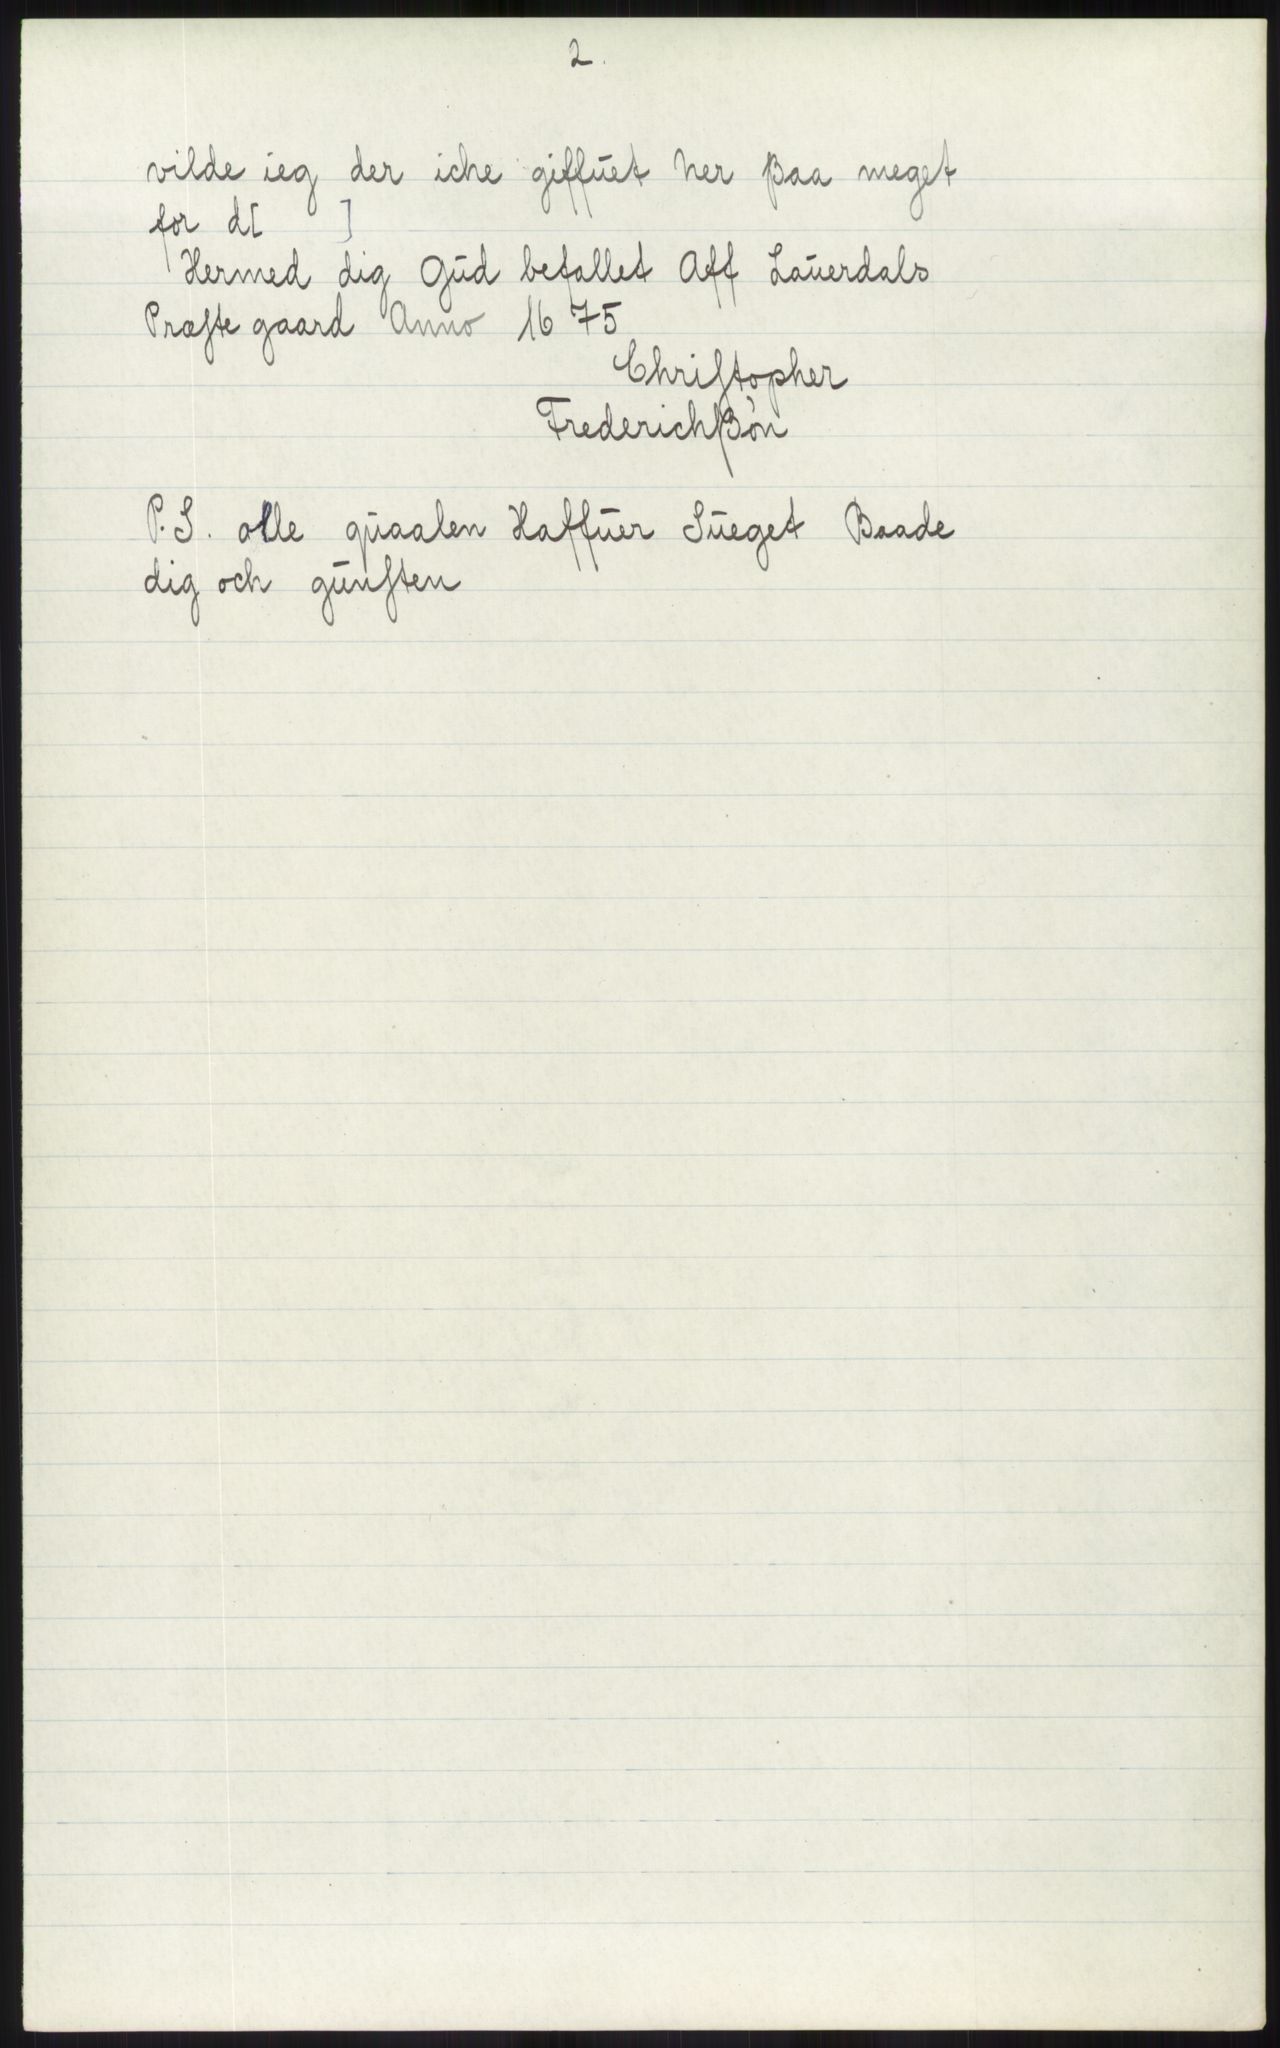 2.
vilde ieg der iche giffŭet her ẞaa meget
for d[ ]
Hermed dig Gŭd befallet Aff Laŭerdals
Præste gaard Anno 1675
Christopher
Frederichßòn
P.S. olle qŭaalen Haffŭer Sŭeget Baade
dig och gŭnsten